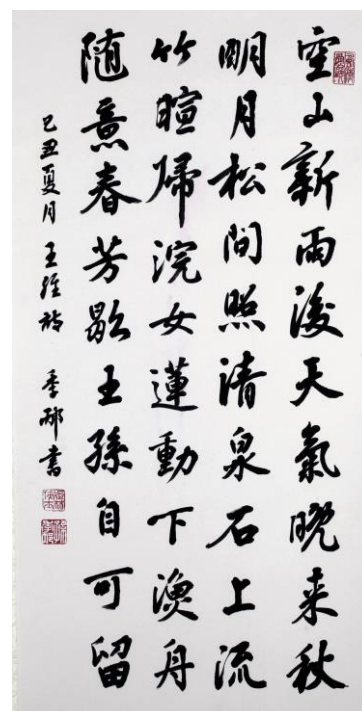 空山新雨後天氣晚来秋
明月松間照清泉石上流
竹暄歸浣女蓮動下漁舟
随意春芳歇王孫自可留
己丑夏月王維詩 季酃書